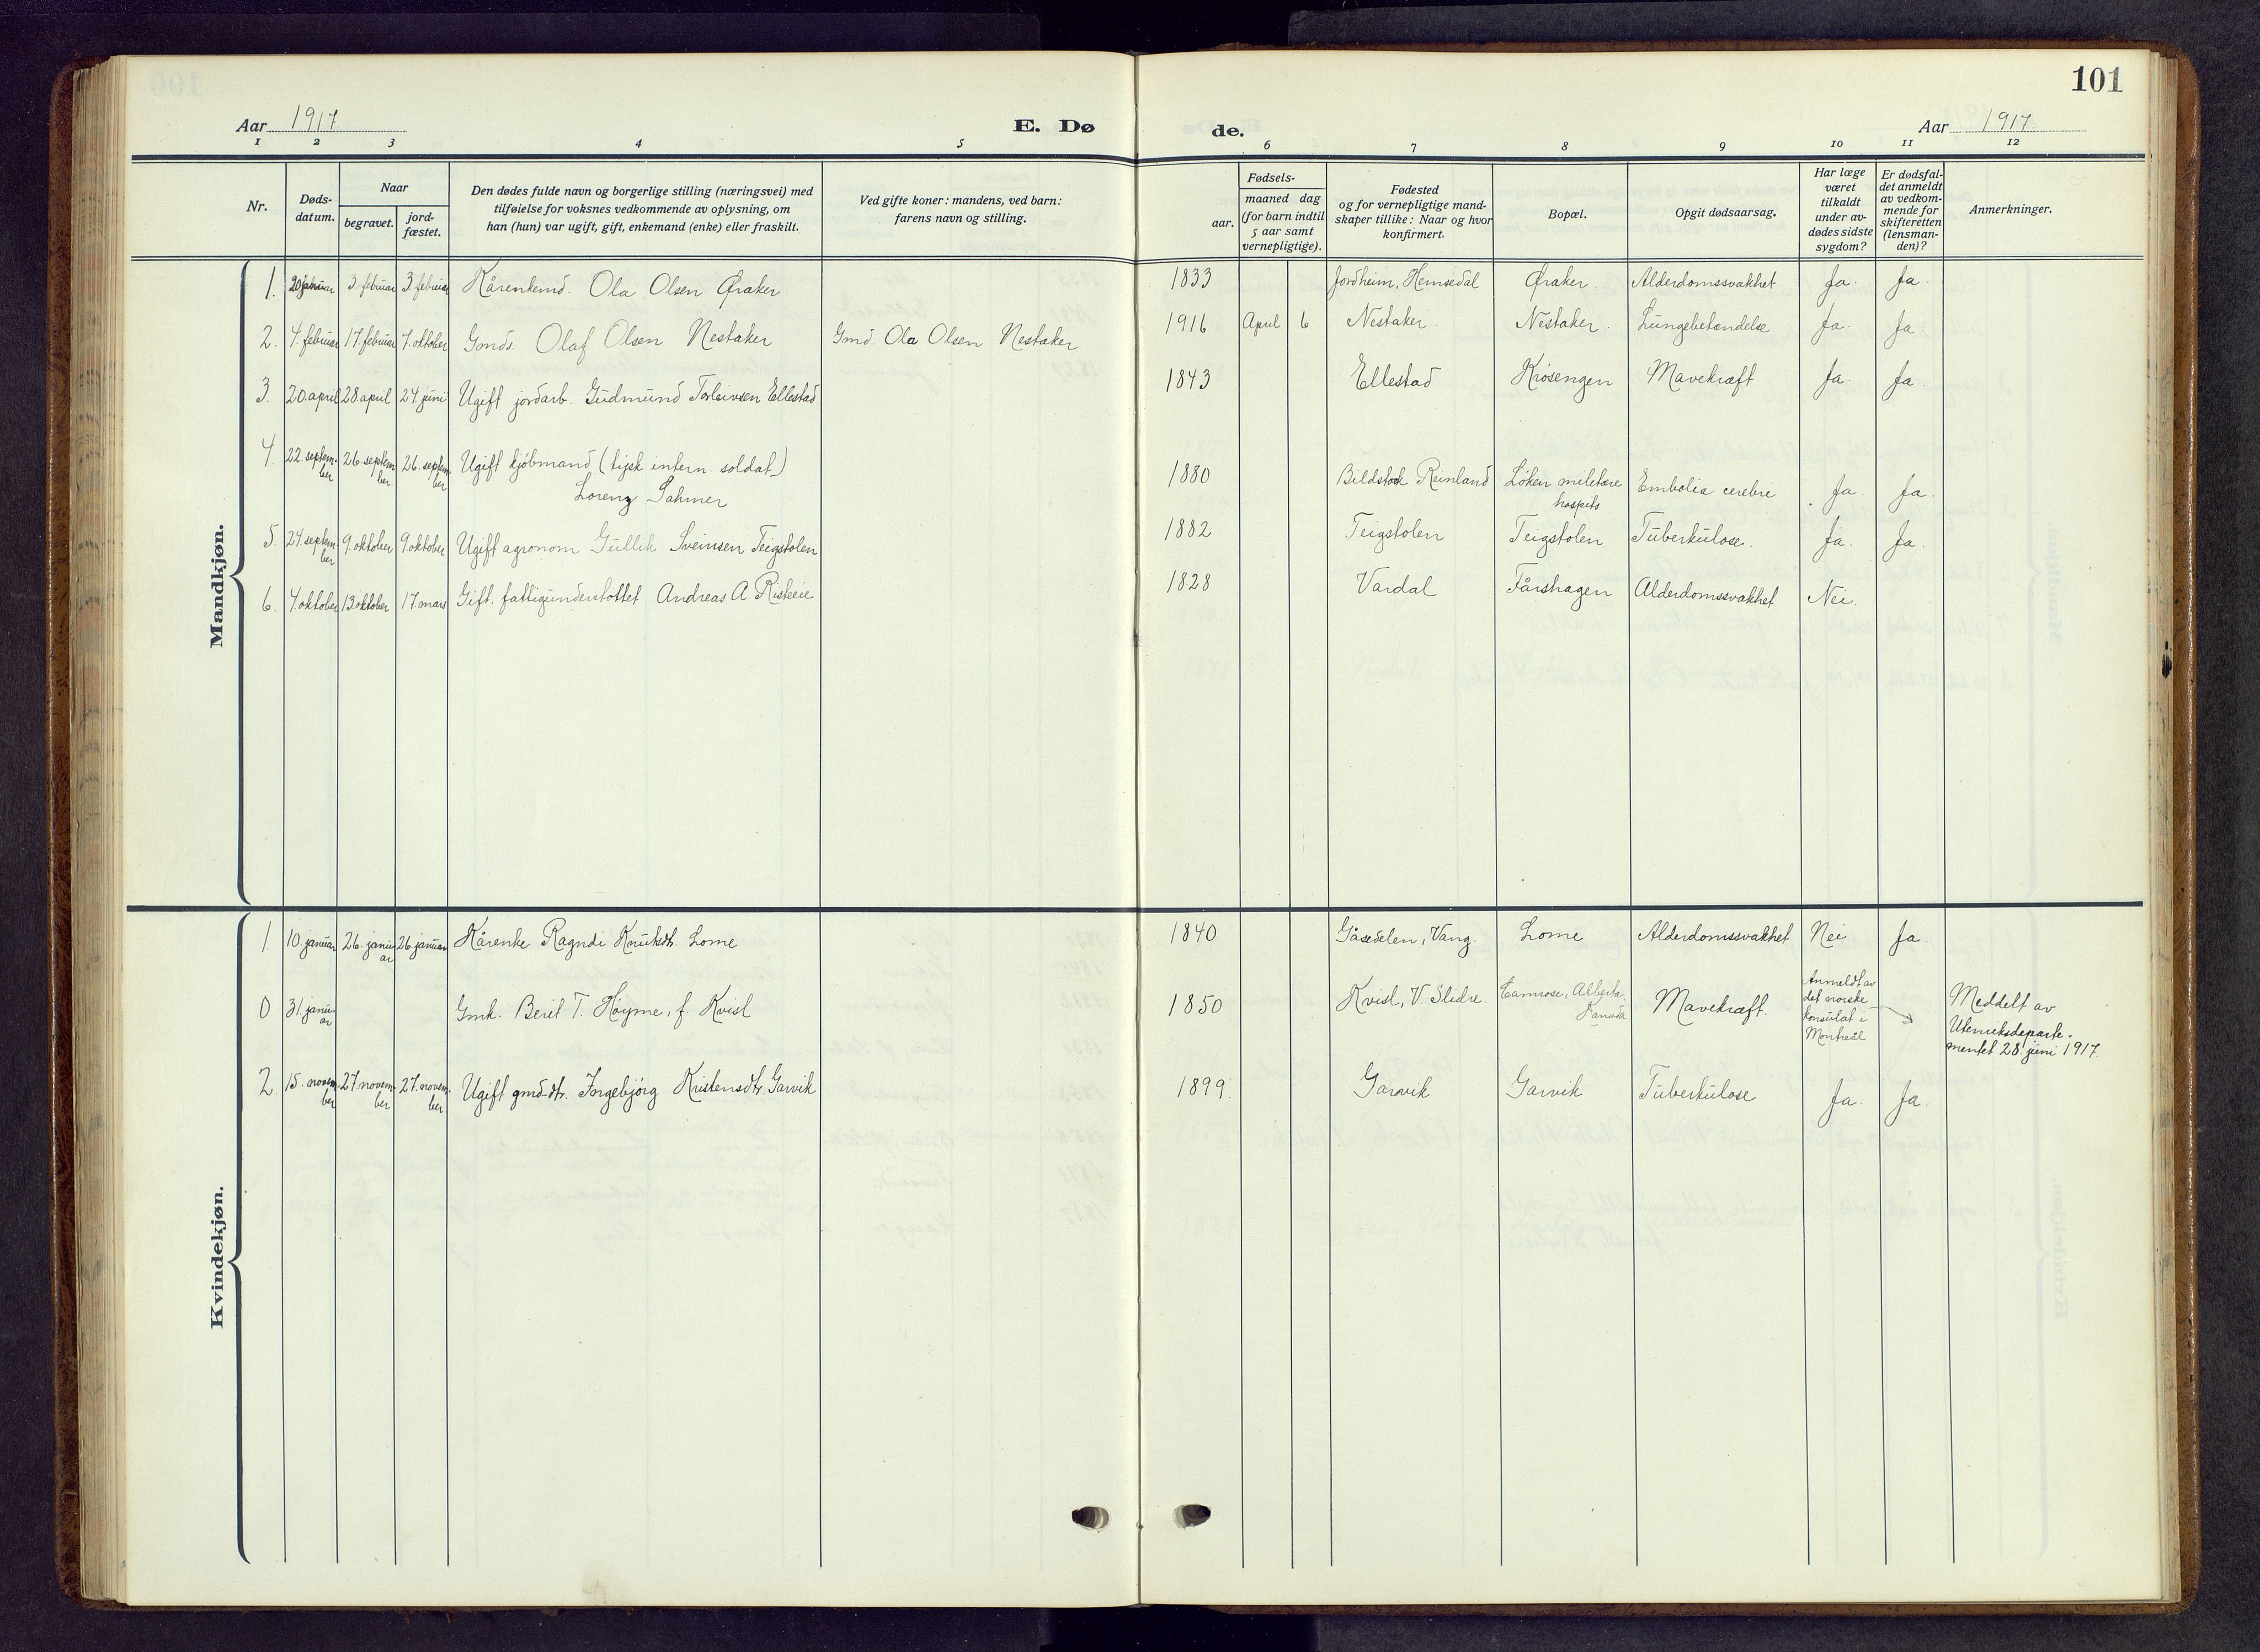 101
Aar 1917 E. Dø de. Aar 1917
1 2 3 4 5 6 7 8 9 10 11 12
Nr.
Døds-
datum.
Naar
begravet.
jord-
fæstet.
Den dødes fulde navn og borgerlige stilling (næringsvei) med
tilføielse for voksnes vedkommende av oplysning, om
han (hun) var ugift, gift, enkemand (enke) eller fraskilt.
Ved gifte koner: mandens, ved barn:
farens navn og stilling.
Fødsels-
aar.
maaned dag
(for barn indtil
5 aar samt
vernepligtige).
Fødested
og for vernepligtige mand-
skaper tillike: Naar og hvor
konfirmert.
Bopæl.
Opgit dødsaarsag.
Har læge
været
tilkaldt
under av-
dødes sidste
sygdom?
Er dødsfal-
det anmeldt
av vedkom-
mende for
skifteretten
(lensman-
den)?
Anmerkninger.
Mandkjøn.
1. 20 januar 3. februar 3. februar Kårenkemd. Ola Olsen Øraker 1833 Jordheim, Hemsedal Øraker Alderdomssvakhet Ja. Ja.
2. 4. februar 17. februar 7. oktober Gmds. Olaf Olsen Nestaker Gmd. Ola Olsen Nestaker 1916 April 6 Nestaker Nestaker Lungebetændelse Ja. Ja
3. 20. april 28. april 24. juni Ugift jordarb. Gudmund Torleivsen Ellestad 1843 Ellestad Krøsengen Mavekræft Ja. Ja.
4. 22. septem- 26. septem 26. septem- Ugift kjöbmand (tysk intern. soldat)
ber ber ber Lorenz Sahmer 1880 Bildstock Reinland Løken militære Embolia cerebri Ja. Ja.
hospits
5. 24. septem- 9. oktober 9. oktober Ugift agronom Gullik Sveinsen Teigstolen 1882 Teigstolen Teigstolen Tuberkulose. Ja. Ja.
ber
6. 4. oktober 13. oktober 17. mars Gift. fattigunderstöttet Andreas A Risteeie 1828 Vardal Fårshagen Alderdomssvakhet Nei.
Kvindekjøn.
1 10. januar 26. janu- 26. januar Kårenke Ragndi Knutsdtr. Lome 1840 Gåsedelen, Vang. Lome Alderdomssvakhet Nei Ja.
ar
0 31. janu- Gmk. Berit T. Höyme, f. Kvisl 1850 Kvisl, V Slidre. Camrose, Alberta, Mavekræft.
ar Kanada
Anmeldt av
det norske
konsulat i
Montreal
Meddelt av
Utenriksdeparte-
mentet 28. juni 1917.
2. 15. novem- 27. novem- 27. novem- Ugift gmd-dtr. Ingebjörg Kristensdtr. Garvik 1899. Garvik Garvik Tuberkulose Ja. Ja.
ber ber ber.